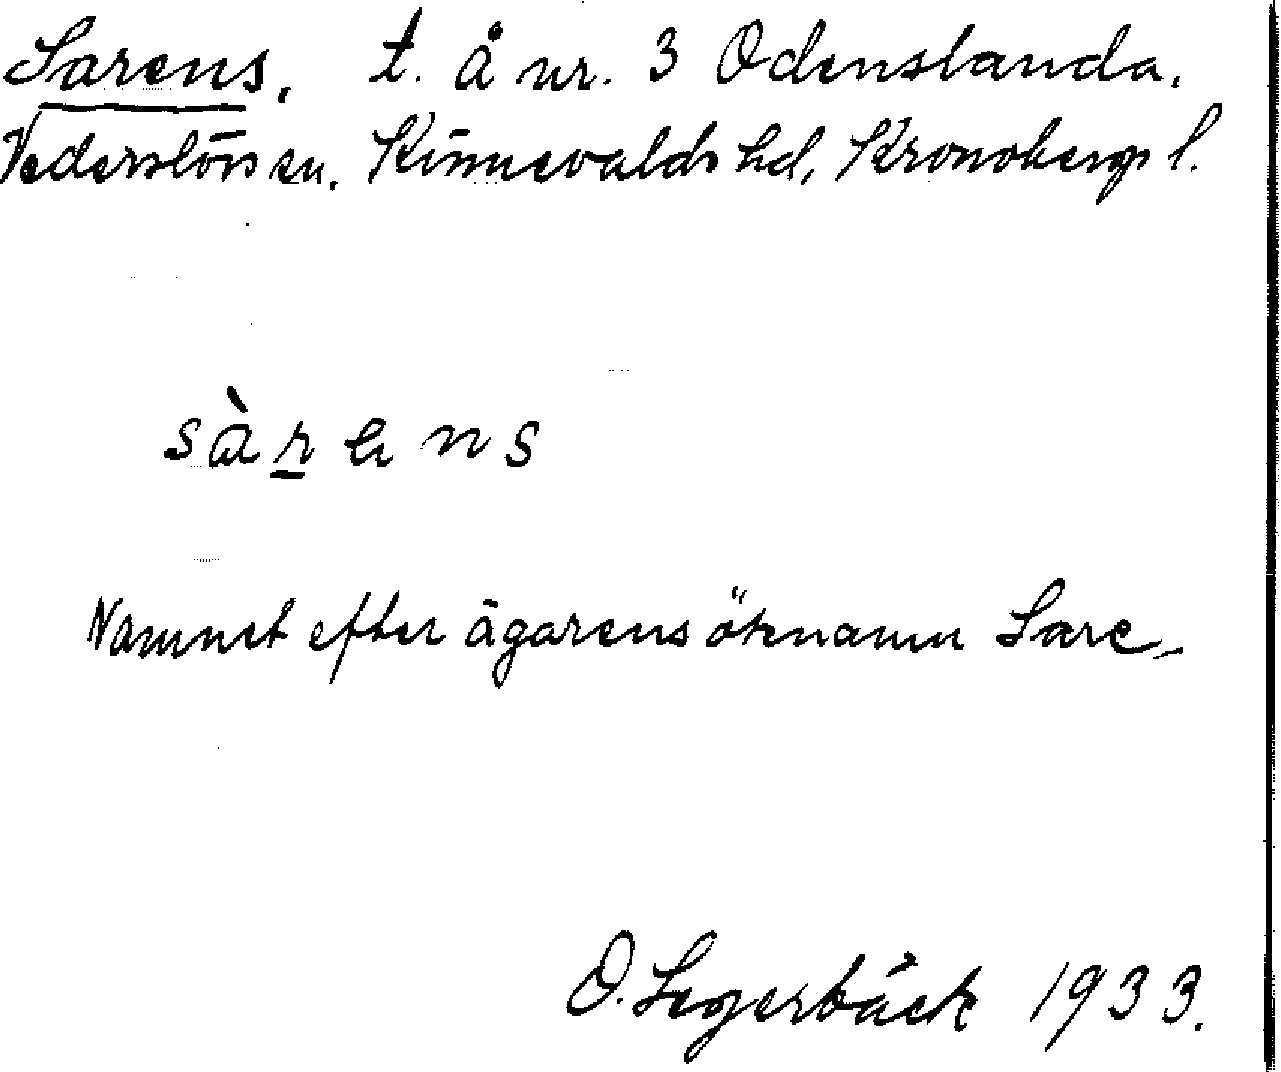 Sarens. t. å nr. 3 Odenslanda.
Vederslövs sn. Kinnevalds hd, Kronobergs l.
sàrens
Namnet efter ägarens öknamn Sare.
O. Segerbäck 1933.